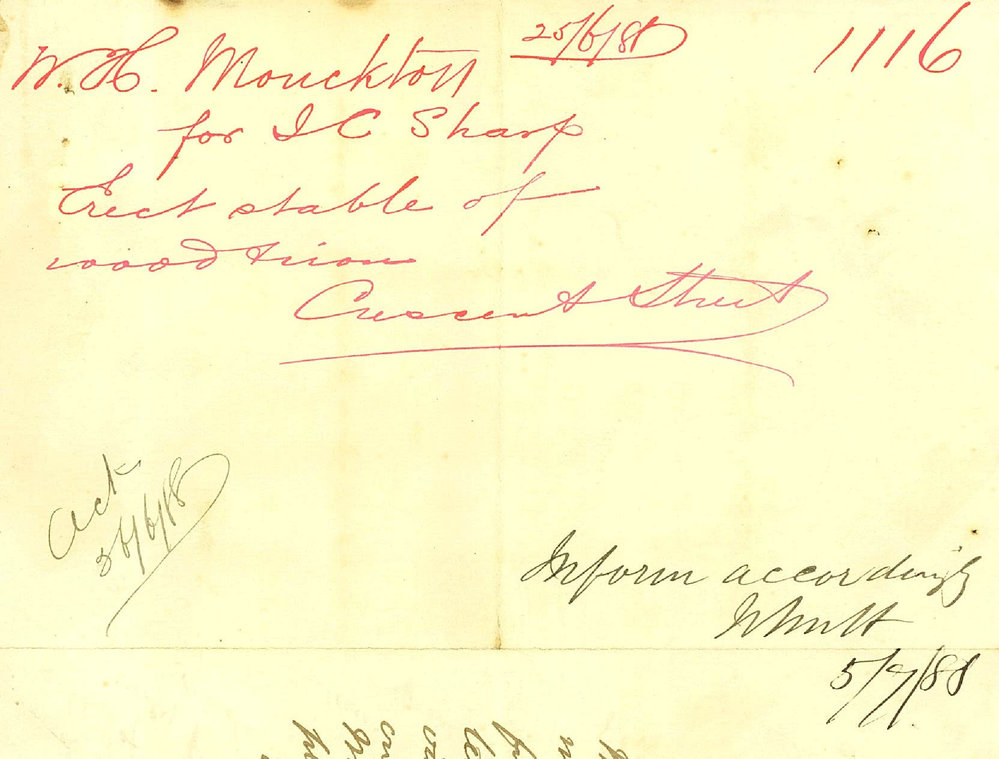 25/6/88 1116
W. H. Monckton
for J C Sharp
Erect stable of
wood & iron
Crescent Street
Ack
26/6/88
Inform accordingly
5/7/88